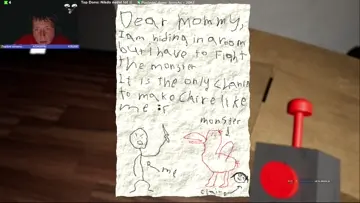 Dear mommy,
I am hiding in a room
but I have to fight
the monster
It is the only chance
to make Claire like
me :r
monster
me